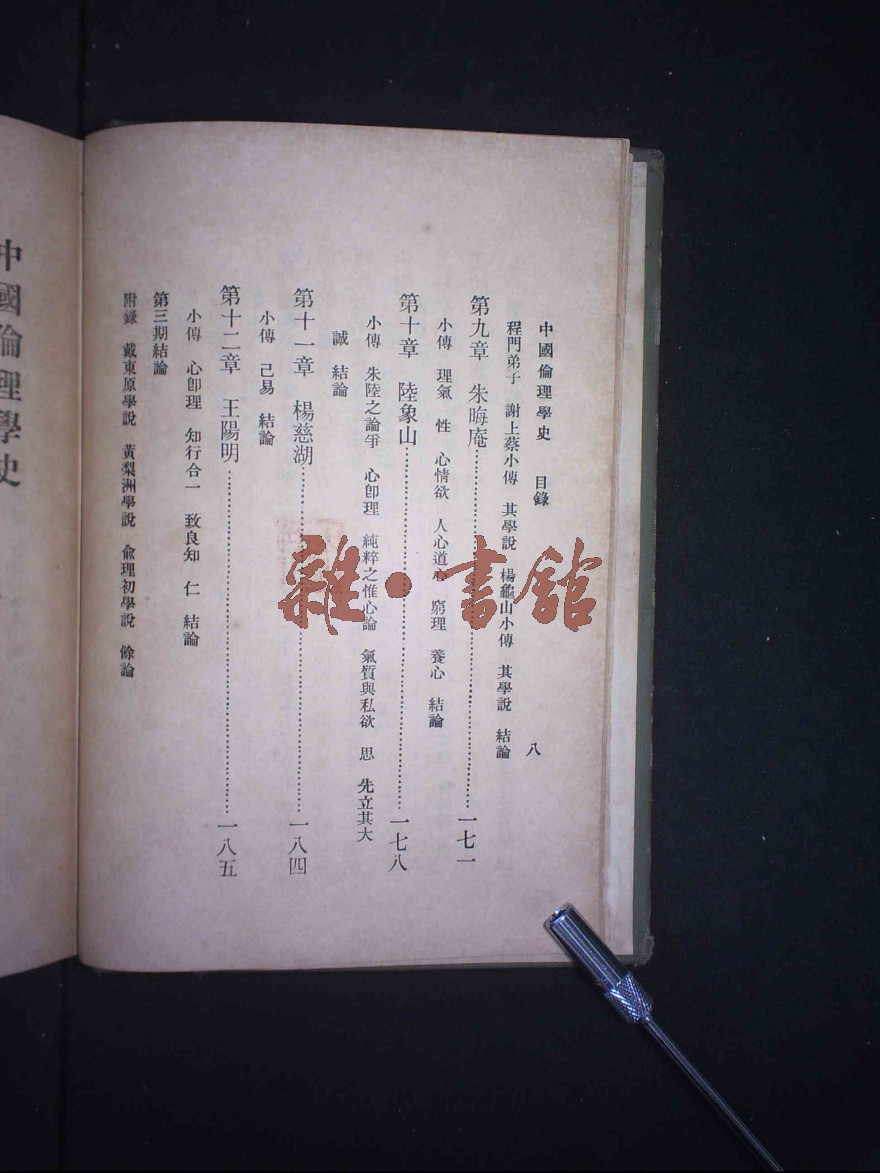 中國倫理學史　目錄　八
程門弟子　謝上蔡小傳　其學說　楊龜山小傳　其學說　結論
第九章　朱晦庵……一七一
小傳　理氣　性　心情欲　人心道心　窮理　養心　結論
第十章　陸象山……一七八
小傳　朱陸之論爭　心卽理　純粹之惟心論　氣質與私欲　思　先立其大
誠　結論
第十一章　楊慈湖……一八四
小傳　己易　結論
第十二章　王陽明……一八五
小傳　心卽理　知行合一　致良知　仁　結論
第三期結論
附錄　戴東原學說　黃梨洲學說　俞理初學說　餘論
中國倫理學史
雜·書館